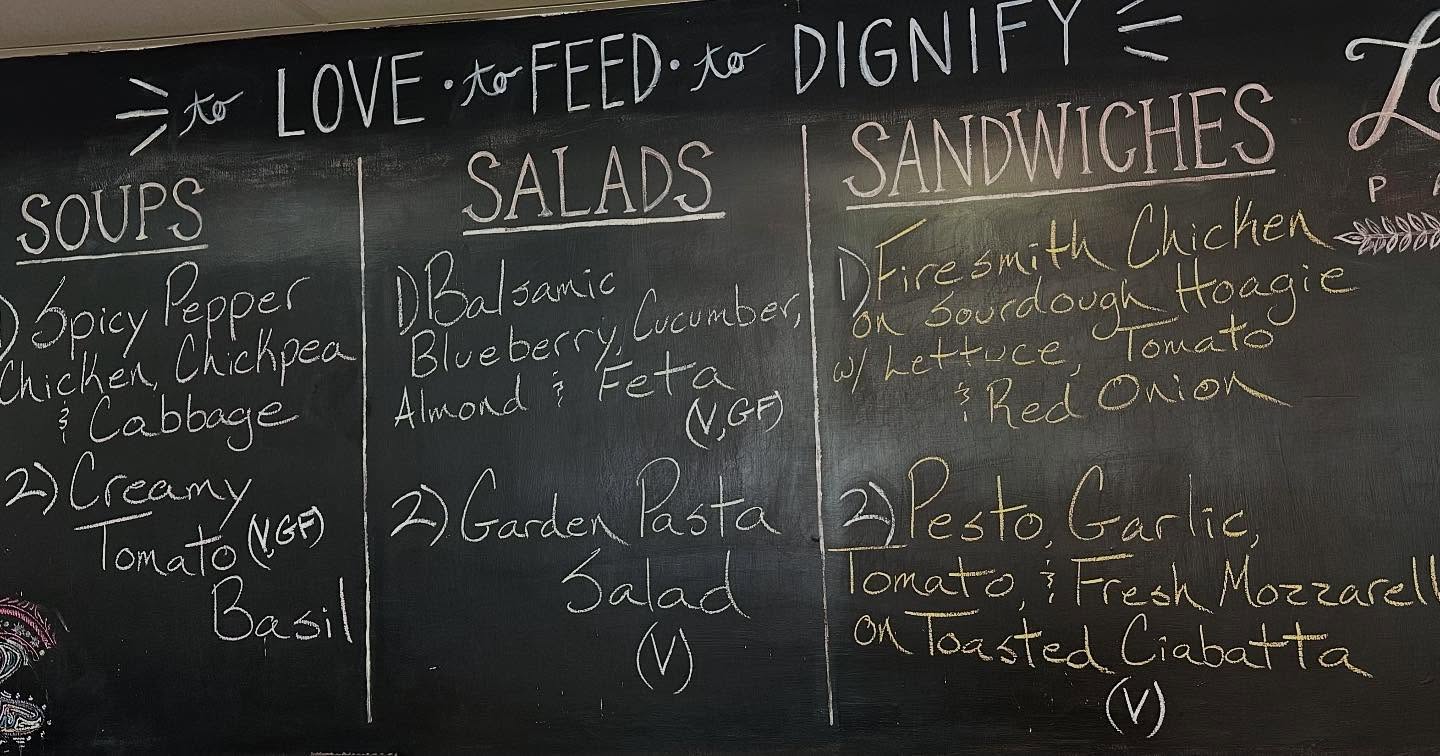 to LOVE · to FEED · to DIGNIFY
SOUPS
1) Spicy Pepper
Chicken, Chickpea
& Cabbage
2) Creamy
Tomato (V,GF)
Basil
SALADS
1) Balsamic
Blueberry, Cucumber,
Almond & Feta
(V, GF)
2) Garden Pasta
Salad
(V)
SANDWICHES
1) Firesmith Chicken
on Sourdough Hoagie
w/ Lettuce, Tomato
& Red Onion
2) Pesto, Garlic,
Tomato, & Fresh Mozzarell
on Toasted Ciabatta
(V)
P